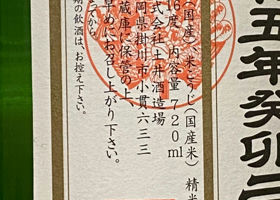 五年癸卯
(国産)、米こうじ(国産米) 精
16度 内容量720ml
式会社土井酒造場
岡県掛川市小貫六三三
蔵庫に保管の上、
早めにお召し上がり下さい。
から
期の飲酒は、お控え下さい。